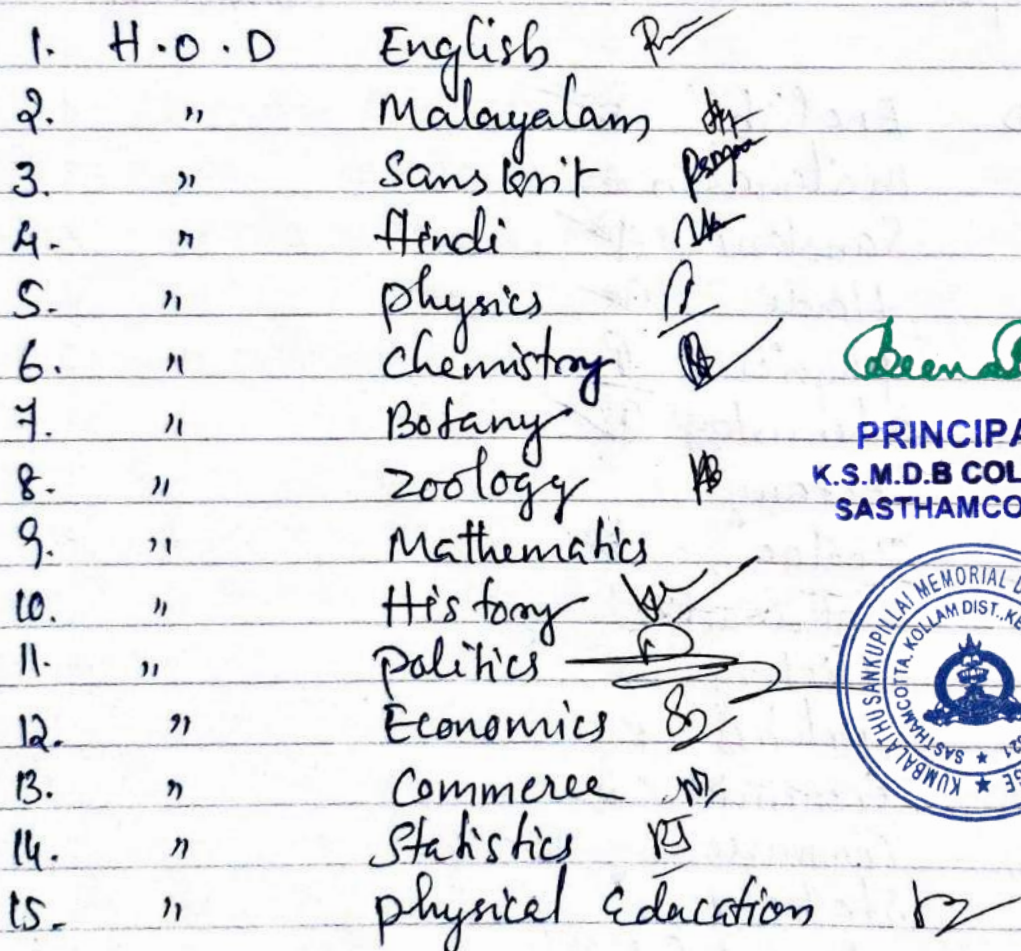 1. H.O.D English
2. " Malayalam
3. " Sanskrit
4. " Hindi
5. " physics
6. " chemistry
7. " Botany
8. " Zoology
9. " Mathematics
10. " History
11. " Politics
12. " Economics
13. " Commerce
14. " Statistics
15. " physical Education
PRINCIPA
K.S.M.D.B COL
SASTHAMCO
KUMBALATHU SANKUPILLAI MEMORIAL D
SASTHAMCOTTA, KOLLAM DIST., KE